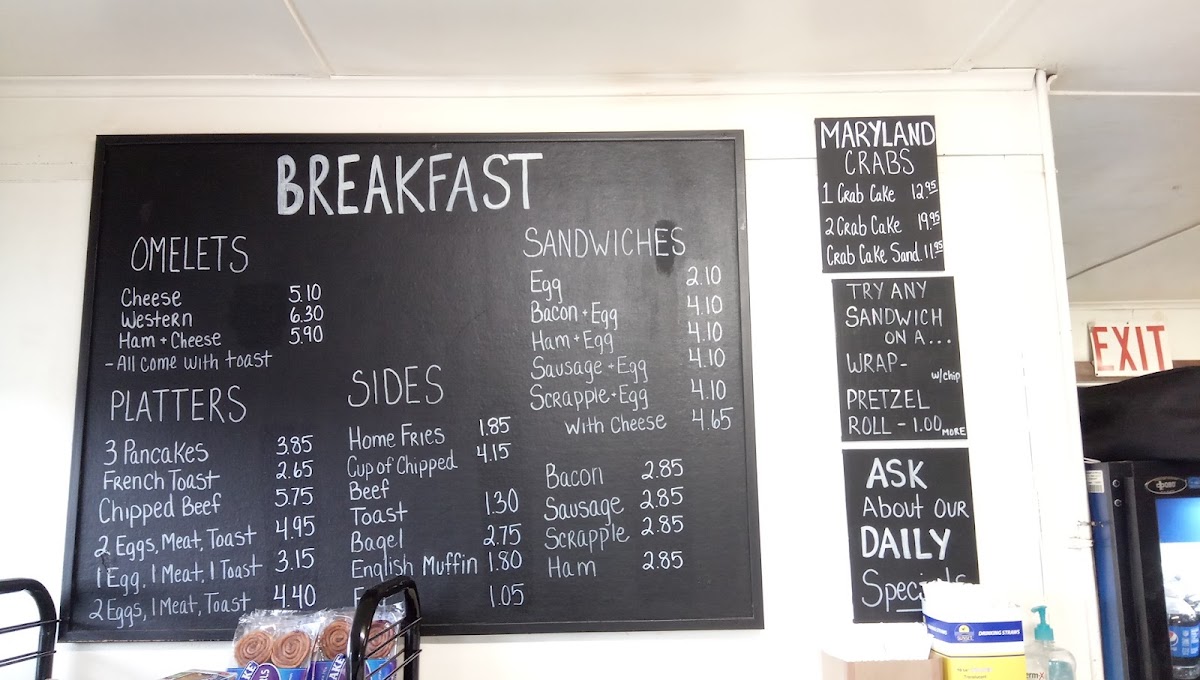 BREAKFAST
OMELETS
Cheese 5.10
Western 6.30
Ham + Cheese 5.90
- All come with toast
PLATTERS
3 Pancakes 3.85
French Toast 2.65
Chipped Beef 5.75
2 Eggs, Meat, Toast 4.95
1 Egg, 1 Meat, 1 Toast 3.15
2 Eggs, 1 Meat, Toast 4.40
SIDES
Home Fries 1.85
Cup of Chipped 4.15
Beef
Toast 1.30
Bagel 2.75
English Muffin 1.80
1.05
SANDWICHES
Egg 2.10
Bacon + Egg 4.10
Ham + Egg 4.10
Sausage + Egg 4.10
Scrapple + Egg 4.10
With Cheese 4.65
Bacon 2.85
Sausage 2.85
Scrapple 2.85
Ham 2.85
MARYLAND
CRABS
1 Crab Cake 12.95
2 Crab Cake 19.95
Crab Cake Sand. 11.95
TRY ANY
SANDWICH
ON A...
WRAP - w/chip
PRETZEL
ROLL - 1.00 MORE
ASK
About our
DAILY
Specials
EXIT
DRINKING STRAWS